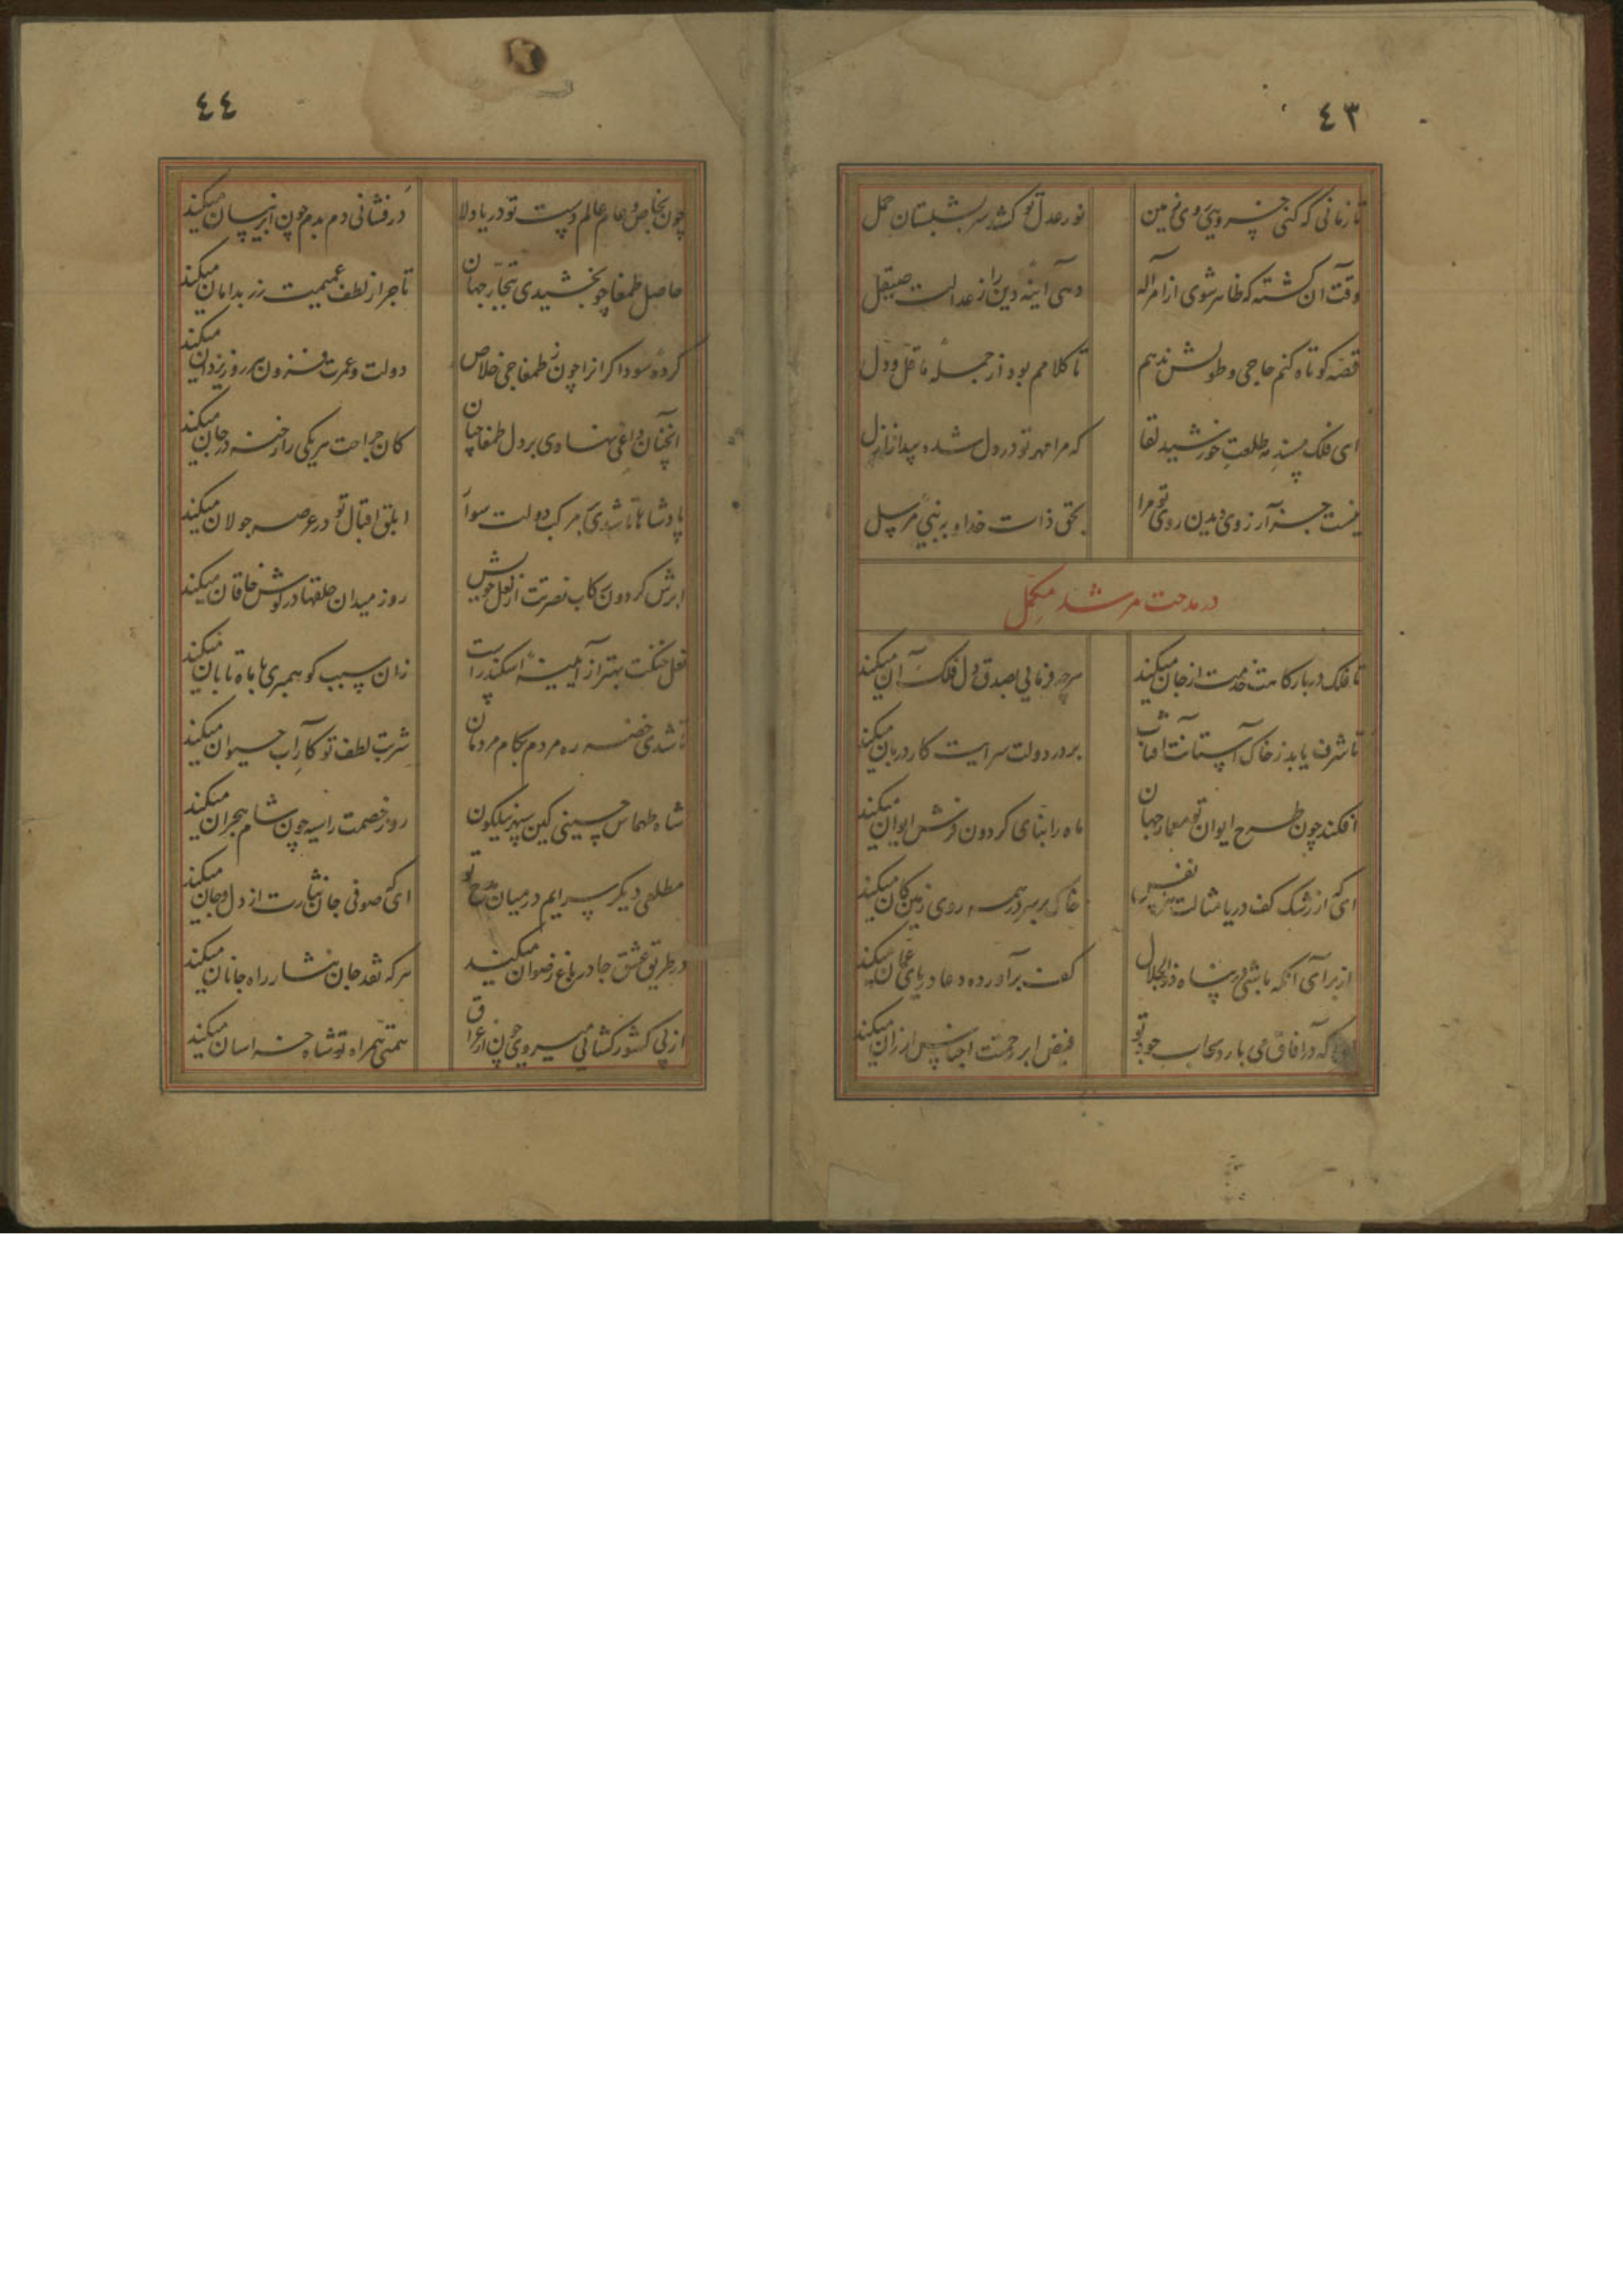 ٤٣
تا زمانی که کنی خسروی روی زمین
نور عدل تو کشد سر بشبستان حمل
وقت آن گشته که ظاهر شوی از امر اله
دهی آینه دین را ز عدالت صیقل
قصه کوتاه کنم حاجی و طولش ندهم
تا کلامم بود از جمله ما قل و دل
ای فلک مسند مه طلعت خورشید لقا
که مرا مهر تو در دل شده پیدا ز ازل
نیست جز آرزوی دیدن روی تو مرا
بحق ذات خدا و به نبی مرسل
در مدحت مرشد مکمل
تا فلک در بارگاهت خدمت از جان میکند
هرچه فرمایی بصدق دل فلک آن میکند
تا شرف یابد ز خاک آستانت آفتاب
بر در دولت سرایت کار دربان میکند
افکند چون طرح ایوان تو معمار جهان
ماه را بنای گردون فرش ایوان میکند
ای که از رشک کف دریا مثالت
خاک بر سر در همه روی زمین کان میکند
از برای آنکه باشی در پناه ذوالجلال
کف برآورده دعا دریای عمان میکند
که در آفاق می بارد سحاب جود تو
فیض ابر رحمتت اجناس ارزان میکند
٤٤
چون بخاص و عام عالم دست تو دریا دلا
درفشانی دم بدم چون ابر نیسان میکند
حاصل طمغا چو بخشیدی بتجار جهان
تاجر از لطف عمیمت زر بدامان میکند
کرده سوداگرانرا چون ز طمغاجی خلاص
دولت و عمرت فزون هر روز یزدان میکند
آنچنان داغی نهادی بر دل طمغاجیان
کان جراحت هر یکی را رخنه در جان میکند
پادشاها تا شدی بر مرکب دولت سوار
ابلق اقبال تو در عرصه جولان میکند
ابرش گردون رکاب نصرتت از نعل خویش
روز میدان حلقها در گوش خاقان میکند
نعل خنگت بهتر از آیینه اسکندر است
زان سبب کو همبری با ماه تابان میکند
تا شدی خضر ره مردم بکام مردمان
شربت لطف تو کار آب حیوان میکند
شاه طهماس حسینی کین سپهر نیلگون
روز خصمت را سیه چون شام هجران میکند
مطلعی دیگر سرایم در میان مدح تو
ای که صوفی جان نثارت از دل و جان میکند
در طریق عشق جا در باغ رضوان میکند
هر که نقد جان نثار راه جانان میکند
از پی کشورگشائی میروی چون از عراق
همتی همراه تو شاه خراسان میکند